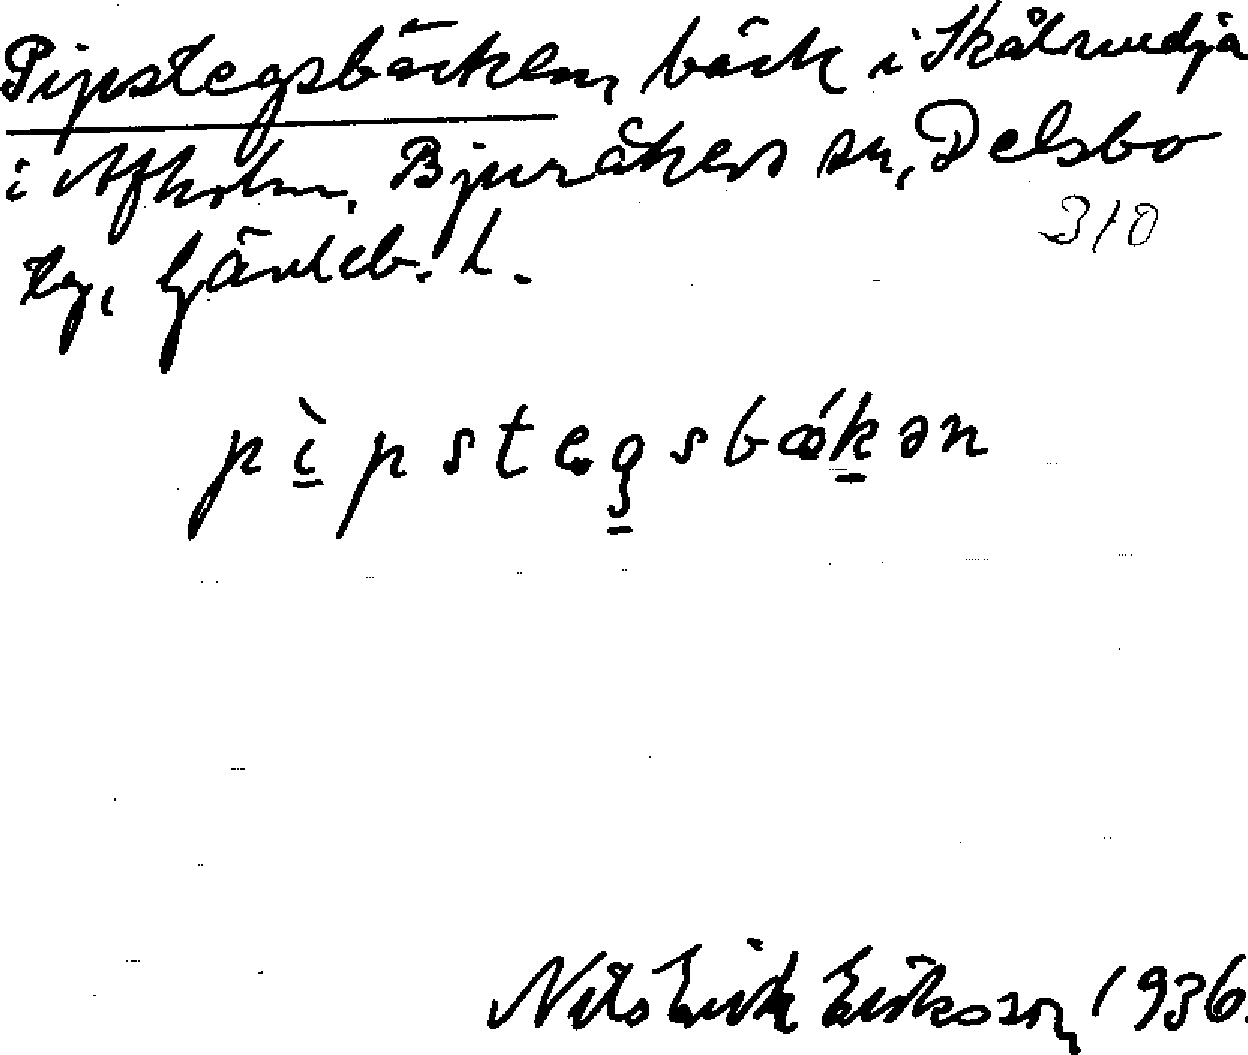 Pipstegsbäcken, bäck i
i Afholm, Bjuråkers sn, Delsbo
310
tg, Gävleb. l.
pìpstegsbǽkən
Nils Erik Eriksson, 1936.